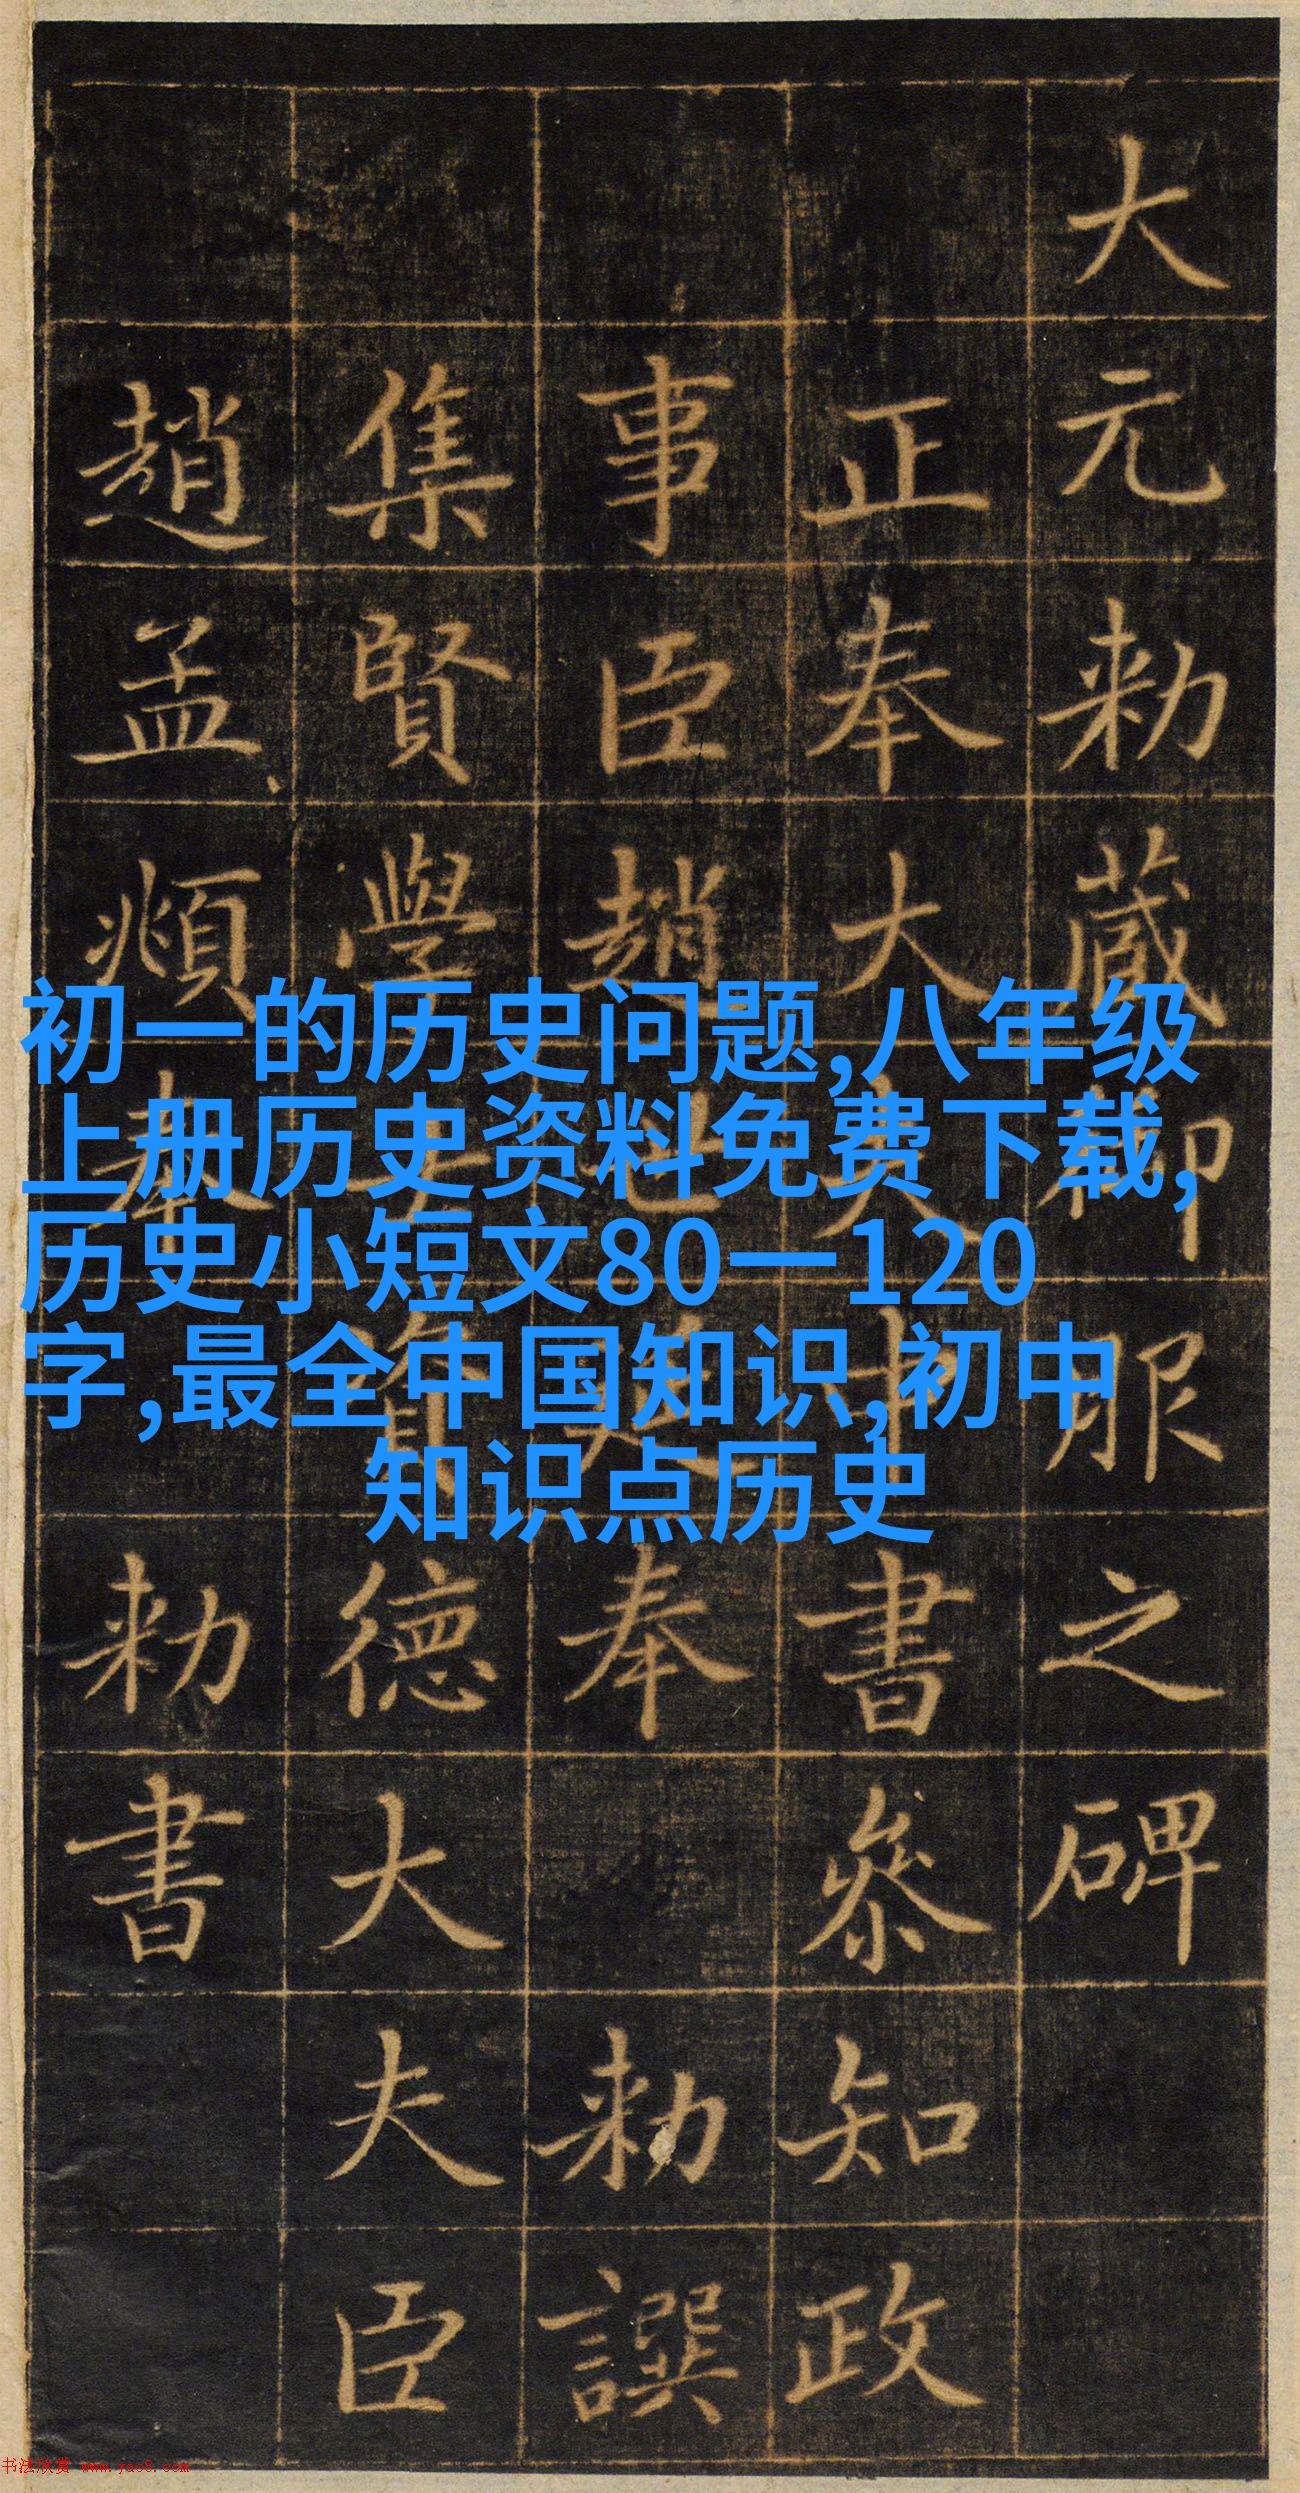 大元勑蔵御服之碑
正奉大夫中書叅知政
事臣趙世延奉勑譔
集賢學士資德大夫臣
趙孟頫奉勑書
初一的历史问题,八年级
上册历史资料免费下载,
历史小短文80一120
字,最全中国知识,初中
知识点历史
书法欣赏 www.yac8.com